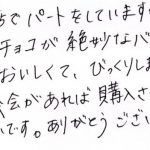 でパートをしています
チョコが絶妙なバ
おいしくて、びっくりしま
会があれば購入さ
です。ありがとうござい